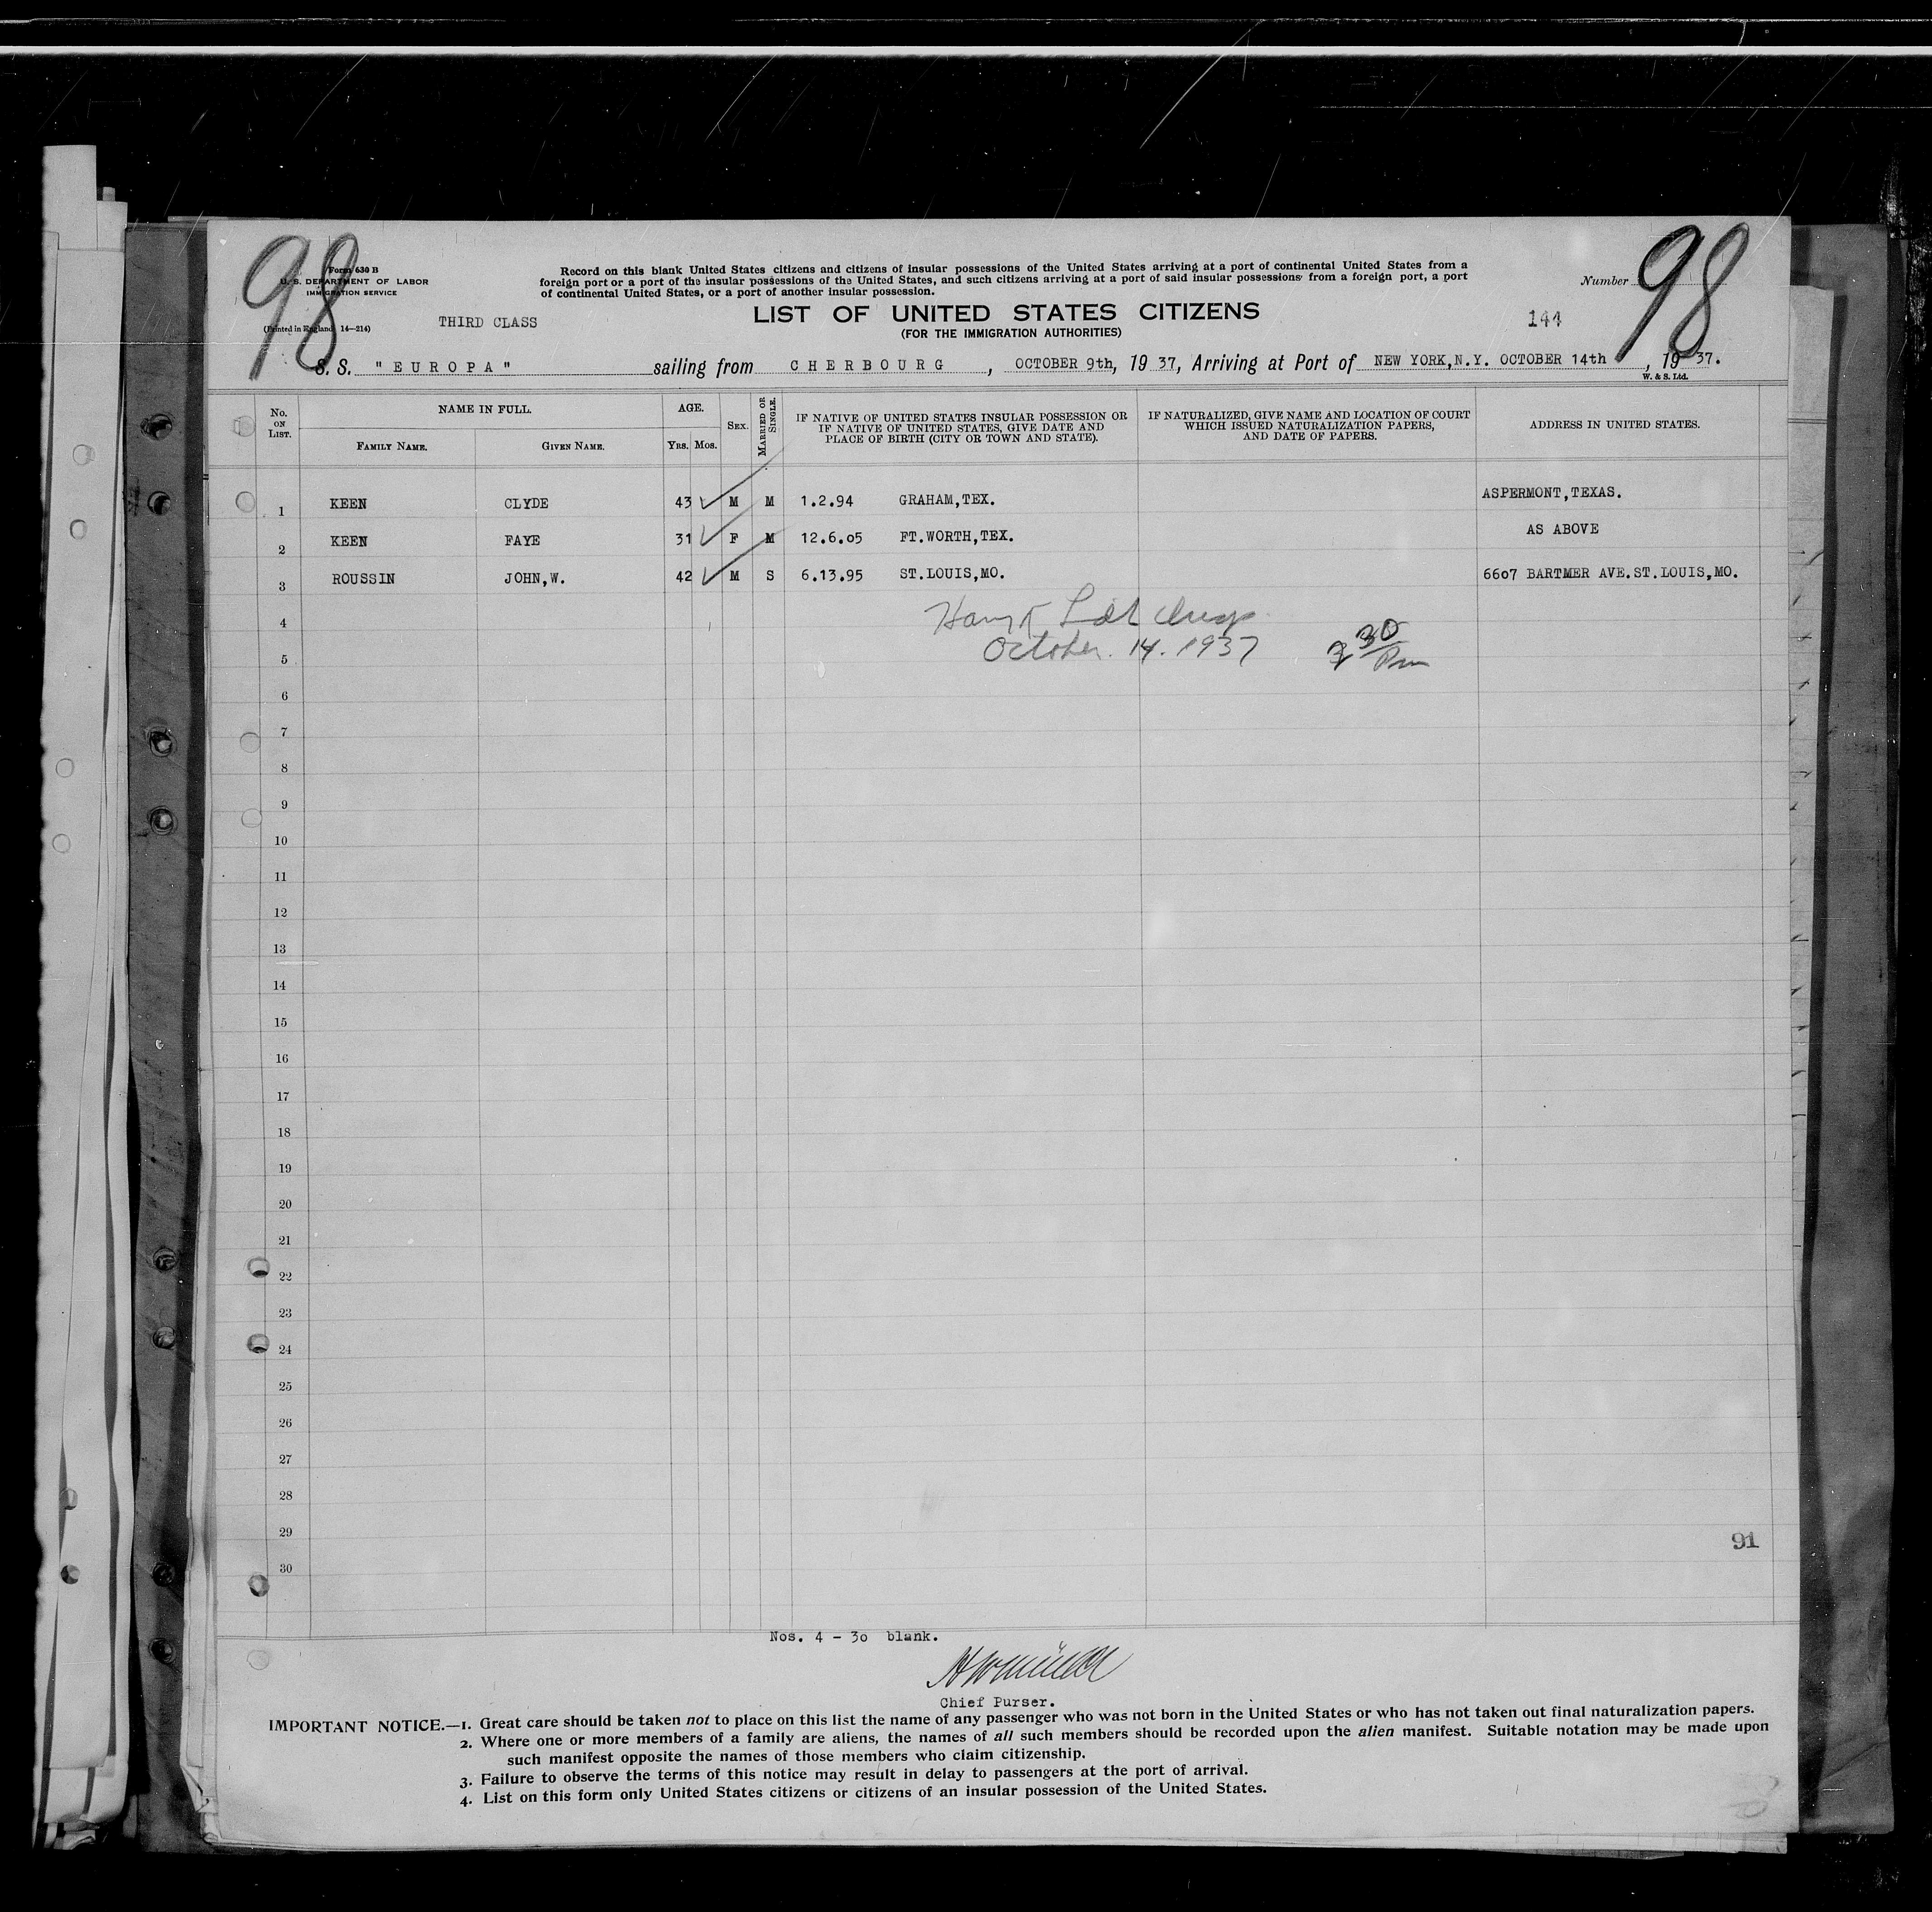 98
98
Form 630 B
U. S. DEPARTMENT OF LABOR
IMMIGRATION SERVICE
(Printed in England 14—214)
Record on this blank United States citizens and citizens of insular possessions of the United States arriving at a port of continental United States from a
foreign port or a port of the insular possessions of the United States, and such citizens arriving at a port of said insular possessions from a foreign port, a port
of continental United States, or a port of another insular possession.
Number
THIRD CLASS
LIST OF UNITED STATES CITIZENS
(FOR THE IMMIGRATION AUTHORITIES)
144
S. S. "EUROPA" sailing from CHERBOURG, OCTOBER 9th, 19 37, Arriving at Port of NEW YORK,N.Y. OCTOBER 14th, 19 37.
W. & S. Ltd.
No. ON LIST.
NAME IN FULL.
FAMILY NAME.
GIVEN NAME.
AGE.
YRS. MOS.
SEX.
MARRIED OR SINGLE.
IF NATIVE OF UNITED STATES INSULAR POSSESSION OR
IF NATIVE OF UNITED STATES, GIVE DATE AND
PLACE OF BIRTH (CITY OR TOWN AND STATE).
IF NATURALIZED, GIVE NAME AND LOCATION OF COURT
WHICH ISSUED NATURALIZATION PAPERS,
AND DATE OF PAPERS.
ADDRESS IN UNITED STATES.
1 KEEN CLYDE 43 M M 1.2.94 GRAHAM,TEX. ASPERMONT,TEXAS.
2 KEEN FAYE 31 F M 12.6.05 FT.WORTH,TEX. AS ABOVE
3 ROUSSIN JOHN,W. 42 M S 6.13.95 ST.LOUIS,MO. 6607 BARTMER AVE.ST.LOUIS,MO.
4
5 October. 14. 1937 2 30 Pm
6
7
8
9
10
11
12
13
14
15
16
17
18
19
20
21
22
23
24
25
26
27
28
29
91
30
Nos. 4 - 30 blank.
Chief Purser.
IMPORTANT NOTICE.—1. Great care should be taken not to place on this list the name of any passenger who was not born in the United States or who has not taken out final naturalization papers.
2. Where one or more members of a family are aliens, the names of all such members should be recorded upon the alien manifest. Suitable notation may be made upon
such manifest opposite the names of those members who claim citizenship.
3. Failure to observe the terms of this notice may result in delay to passengers at the port of arrival.
4. List on this form only United States citizens or citizens of an insular possession of the United States.